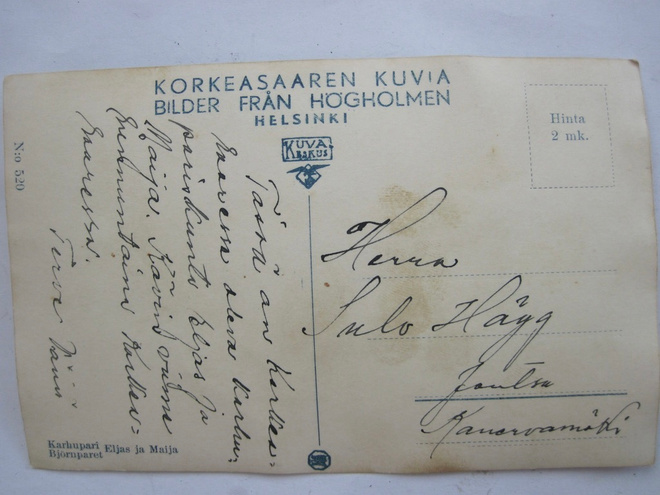 KORKEASAAREN KUVIA
BILDER FRÅN HÖGHOLMEN
HELSINKI
KUVA
KESKUS
Hinta
2 mk.
N:o 520
Tässä on Korkea=
saaressa oleva karhu=
pariskunta Eljas ja
Maija. Kävin viime
sunnuntaina Korkea=
saaressa.
Terve
Herra
Sulo Hägg
Joutsa
Kanervamäki
Karhupari Eljas ja Maija
Björnparet